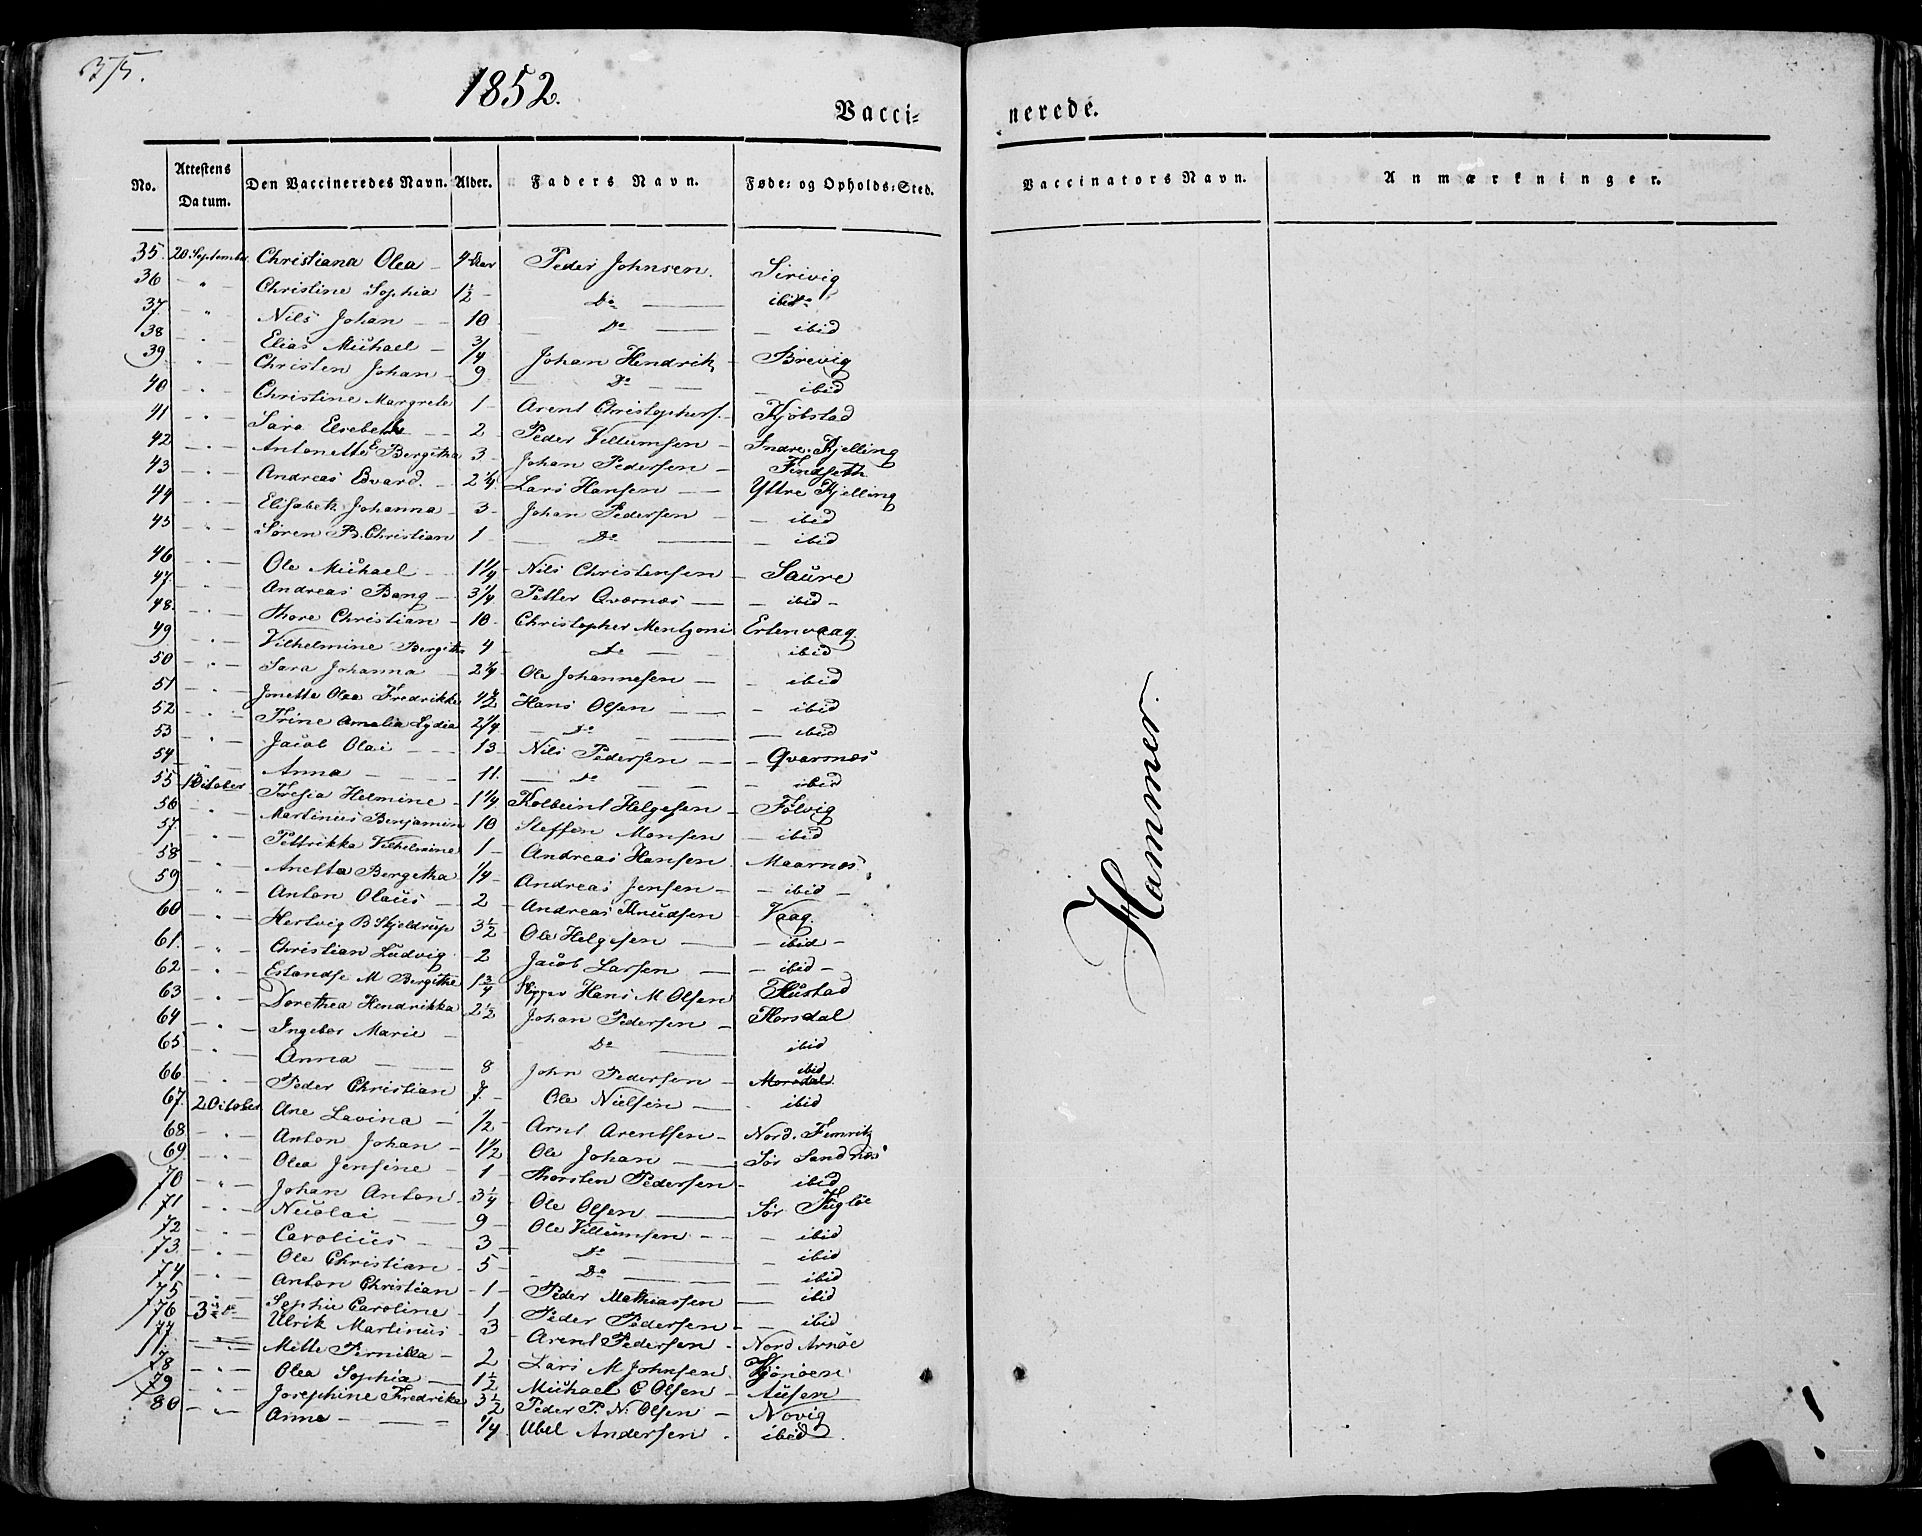 375.
1852.
Vacci= nerede.
No. Attestens Datum. Den Vaccineredes Navn. Alder. Faders Navn. Føde= og Opholds=Sted. Vaccinators Navn. Anmærkninger.
35. 20 September Christiana Olea 4 Aar Peder Johnsen. Sirivig
36 " Christine Sophia 1½ Do ibid
37 " Nils Johan 10 Do ibid
38 " Elias Michael 3/4 Johan Hendrik Brevig
39 " Christen Johan 9 Do ibid
40 " Christine Margrete 1 Arent Christophers. Kjøbstad
41 " Sara Elsebeth 2 Peder Villumsen Indre Kjelling
42 " Antonette E Bergitha 3 Johan Pedersen Findseth
43 " Andreas Edvard. 2¼ Lars Hansen Yttre Kjelling
44 " Elisabeth Johanna 3 Johan Pedersen ibid
45 " Søren B. Christian 1 Do ibid
46 " Ole Michael 1¼ Nils Christensen Saure
47. " Andreas Bang 3¼ Petter Qvarnæs ibid
48. " Thore Christian 10 Christopher Mentzoni Ertenvaag
49 " Vilhelmine Bergithe 4 Do ibid
50 " Sara Johanna 2¼ Ole Johannesen ibid
51 " Jonette Olea Fredrikke 4½ Hans Olsen ibid
52 " Trine Amalia Lydia 2¼ Do ibid
53 " Jacob Olai 13 Nils Pedersen Qvarnæs
54 " Anna 11. Do ibid
55 1 October Fresia Helmine 1¼ Kolbeint Helgesen Følvig
56 " Martinus Benjamin 10 Steffen Monsen ibid
57. " Pettrikka Vilhelmine 1 Andreas Hansen Maarnæs
58 " Anetta Bergetha 1/4 Andreas Jensen ibid
59 " Anton Olaus 2 Andreas Knudsen Vaag.
60 " Hertvig B Skjeldrup 3½ Ole Helgesen ibid
61. " Christian Ludvig 2 Jacob Larsen ibid
62 " M Bergithe 1¾ Skipper Hans M Olsen Hustad
63 " Dorethea Hendrikka 2½ Johan Pedersen Horsdal
64 " Ingebor Marie Do ibid
65 " Anna 8 John Pedersen ibid
66 " Peder Christian 7 Ole Nielsen ibid
67. 2 October Ane Lavina 1/2 Arnt Arentsen Nord. Fimvik
68 " Anton Johan 1½ Ole Johan Sør Sandnæs
69 " Olea Jensine 1 Thorsten Pedersen ibid
70 " Johan Anton 3¼ Ole Olsen Sør Fugløe
71 " Nicolai 9 Ole Villumsen ibid
72 " Carolius 3 Do ibid
73. " Ole Christian 5 Do ibid
74 " Anton Christian 1 Peder Mathiassen ibid
75 " Sophie Caroline 1 Peder Pedersen ibid
76 3 Do Ulrik Martinus 3 Arent Pedersen Nord Arnøe
77. " Mette Pernilla 2 Lars M Johnsen
78 " Olea Sophia 1½ Michael C Olsen Ausen
79 " Josephine Fredrike 3½ Peder P. N. Olsen Novig
80 " Anna 1/4 Abel Andersen ibid
Hammer.